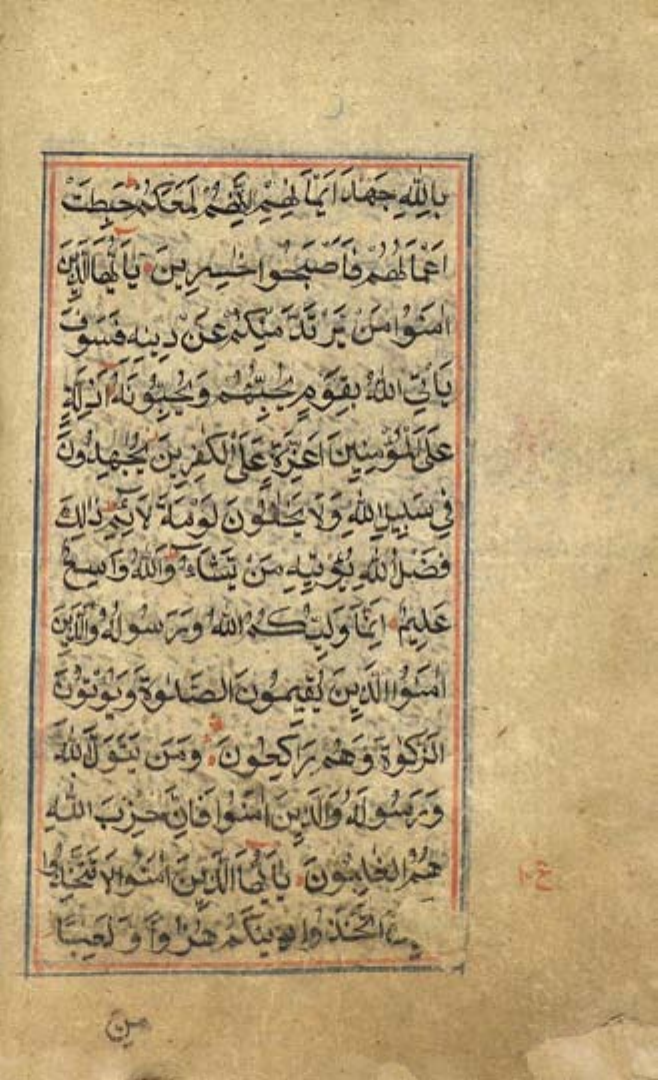 بِاللّٰهِ جَهْدَ اَيْمَانِهِمْ اِنَّهُمْ لَمَعَكُمْ حَبِطَتْ
اَعْمَالُهُمْ فَاَصْبَحُوْا خٰسِرِيْنَ يٰاَيُّهَا الَّذِيْنَ
اٰمَنُوْا مَنْ يَرْتَدَّ مِنْكُمْ عَنْ دِيْنِهٖ فَسَوْفَ
يَاْتِى اللّٰهُ بِقَوْمٍ يُحِبُّهُمْ وَيُحِبُّوْنَهُ اَذِلَّةٍ
عَلَى الْمُؤْمِنِيْنَ اَعِزَّةٍ عَلَى الْكٰفِرِيْنَ يُجٰهِدُوْنَ
فِى سَبِيْلِ اللّٰهِ وَلَا يَخَافُوْنَ لَوْمَةَ لَائِمٍ ذٰلِكَ
فَضْلُ اللّٰهِ يُؤْتِيْهِ مَنْ يَّشَاءُ وَاللّٰهُ وَاسِعٌ
عَلِيْمٌ اِنَّمَا وَلِيُّكُمُ اللّٰهُ وَرَسُوْلُهُ وَالَّذِيْنَ
اٰمَنُوا الَّذِيْنَ يُقِيْمُوْنَ الصَّلٰوةَ وَيُؤْتُوْنَ
الزَّكٰوةَ وَهُمْ رَاكِعُوْنَ وَمَنْ يَّتَوَلَّ اللّٰهَ
وَرَسُوْلَهُ وَالَّذِيْنَ اٰمَنُوْا فَاِنَّ حِزْبَ اللّٰهِ
هُمُ الْغٰلِبُوْنَ يٰاَيُّهَا الَّذِيْنَ اٰمَنُوْا لَا تَتَّخِذُوا
اتَّخَذُوْا دِيْنَكُمْ هُزُوًا وَّلَعِبًا
مِنَ